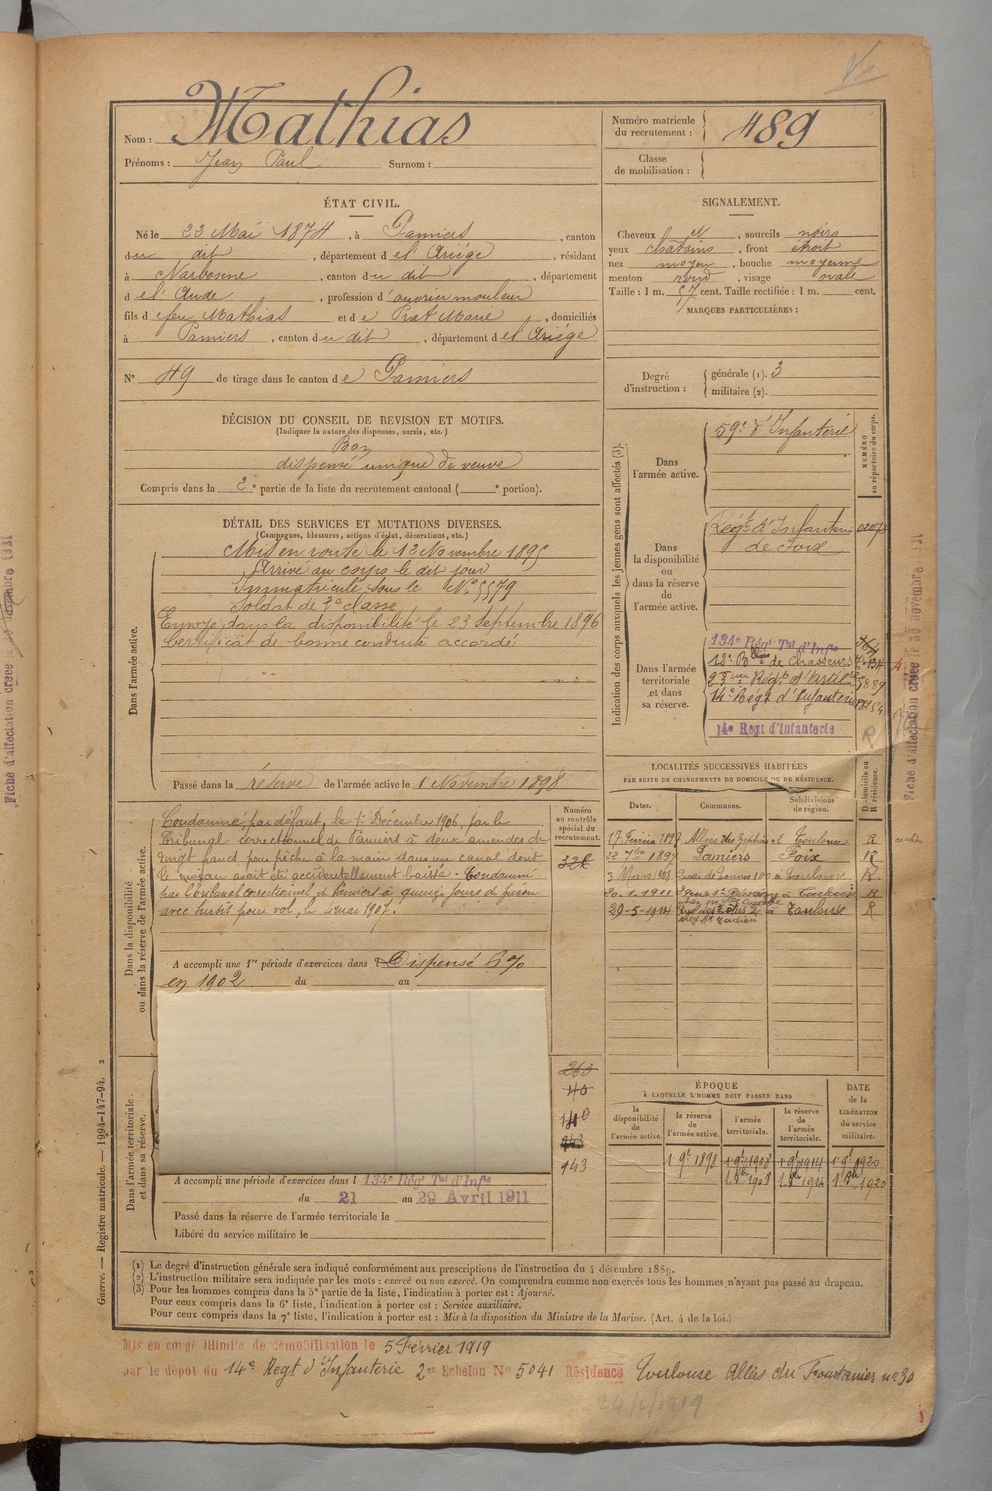 Mathias
Nom :
Prénoms : Jean Paul Surnom :
Numéro matricule du recrutement : 489
Classe de mobilisation :
ÉTAT CIVIL.
Né le 22 Mai 1874, à Pamiers, canton
du dit, département de l'Ariège, résidant
à Narbonne, canton du dit, département
de l'Aude, profession d'ouvrier mouleur
fils de feu Mathias et de Prat Marie, domiciliés
à Pamiers, canton du dit, département de l'Ariège
N° 49 de tirage dans le canton de Pamiers
SIGNALEMENT.
Cheveux N, sourcils noirs
yeux chatains, front étroit
nez moyen, bouche moyenne
menton rond, visage ovale
Taille : 1 m. 57 cent. Taille rectifiée : 1 m. cent.
MARQUES PARTICULIÈRES :
Degré d'instruction : générale (1). 3
militaire (2).
DÉCISION DU CONSEIL DE REVISION ET MOTIFS.
(Indiquer la nature des dispenses, sursis, etc.)
Bon
dispensé unique de veuve
Compris dans la 2e partie de la liste du recrutement cantonal ( e portion).
DÉTAIL DES SERVICES ET MUTATIONS DIVERSES.
(Campagnes, blessures, actions d'éclat, décorations, etc.)
Dans l'armée active.
Mis en route le 12 Novembre 1895
Arrivé au corps le dit jour
Immatriculé sous le N° 5579
Soldat de 2e classe
Envoyé dans la disponibilité le 23 Septembre 1896
Certificat de bonne conduite accordé
Passé dans la réserve de l'armée active le 1 Novembre 1898
Indication des corps auxquels les jeunes gens sont affectés (3).
NUMÉRO au répertoire du corps.
Dans l'armée active.
59e d'Infanterie
Dans la disponibilité ou dans la réserve de l'armée active.
Régt d'Infanterie
de Foix
Dans l'armée territoriale et dans sa réserve.
134e Régt Tal d'Infie
12e Bon de Chasseurs
23eme Régt d'Artil
14e Régt d'Infanterie
14e Regt d'Infanterie
LOCALITÉS SUCCESSIVES HABITÉES
PAR SUITE DE CHANGEMENTS DE DOMICILE OU DE RÉSIDENCE.
Dates. Communes. Subdivisions de région. D domicile ou R résidence.
17 Février 1897 Toulouse R
22 7bre 1897 Pamiers Foix R
3 Mars 1908 Toulouse R
20.1.1911 R
29-5-1914 Toulouse R
Dans la disponibilité ou dans la réserve de l'armée active.
Numéro au contrôle spécial du recrutement.
Condamné, par défaut, le 1er Décembre 1906, par le
Tribunal correctionnel de Pamiers à deux amendes de
vingt francs, pour pêche à la main dans un canal dont
le niveau avait été accidentellement baissé. Condamné
par le Tribunal correctionnel de Pamiers à quinze jours de prison
avec sursis pour vol, le 4 mai 1907.
A accompli une 1re période d'exercices dans Dispensé 6%
en 1902 du au
943
943
ÉPOQUE
À LAQUELLE L'HOMME DOIT PASSER DANS
la disponibilité de l'armée active. la réserve de l'armée active. l'armée territoriale. la réserve de l'armée territoriale.
DATE de la LIBÉRATION du service militaire.
1 9bre 1898 1 9bre 1908 1 9bre 1914 1 9bre 1920
Dans l'armée territoriale et dans sa réserve.
A accompli une période d'exercices dans l 134e Régt Tal d'Infie
du 21 au 29 Avril 1911
Passé dans la réserve de l'armée territoriale le
Libéré du service militaire le
Guerre. — Registre matricule. — 1994-147-94. 2
(1) Le degré d'instruction générale sera indiqué conformément aux prescriptions de l'instruction du 4 décembre 1889.
(2) L'instruction militaire sera indiquée par les mots : exercé ou non exercé. On comprendra comme non exercés tous les hommes n'ayant pas passé au drapeau.
(3) Pour les hommes compris dans la 5e partie de la liste, l'indication à porter est : Ajourné.
Pour ceux compris dans la 6e liste, l'indication à porter est : Service auxiliaire.
Pour ceux compris dans la 7e liste, l'indication à porter est : Mis à la disposition du Ministre de la Marine. (Art. 4 de la loi.)
Mis en congé illimité de démobilisation le 5 Février 1919
par le dépot du 14e Regt d'Infanterie 2e Echelon N° 5041 Résidence Toulouse Allées du Fourtanier n° 30